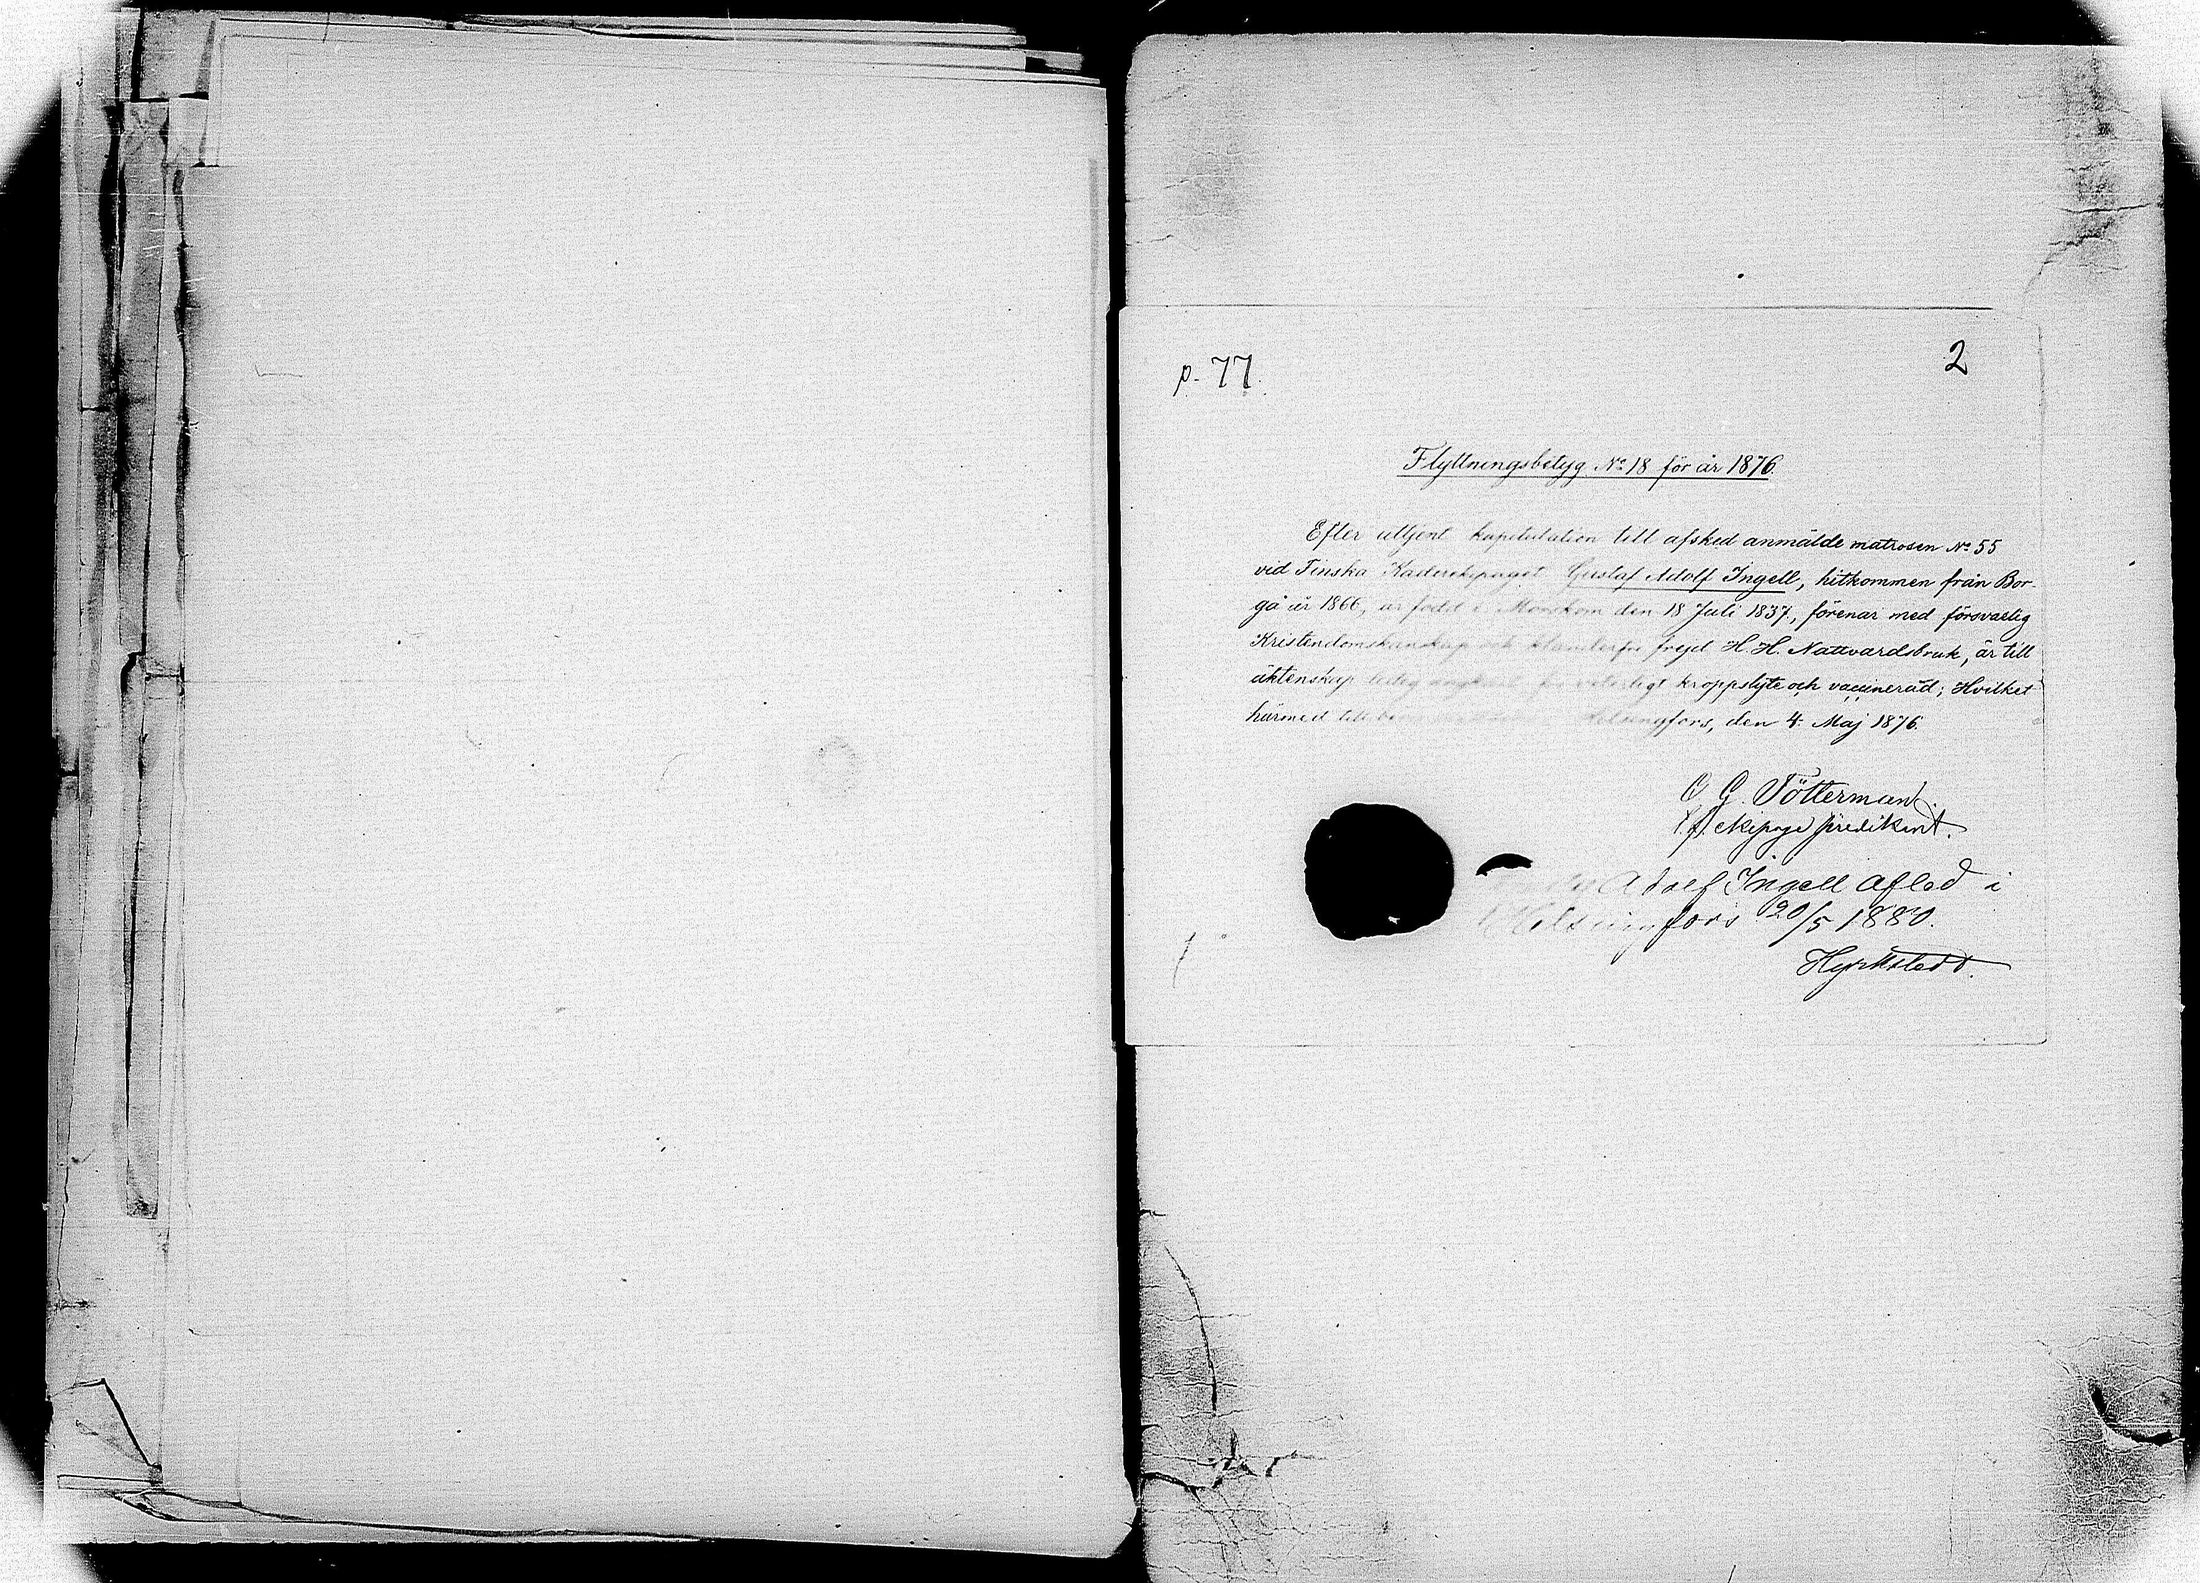 p. 77.
2
Flyttningsbetyg No 18 för år 1876.
Efter uttjent kapitulation till afsked anmälde matrosen No 55
vid Finska Kaderekipaget Gustaf Adolf Ingell, hitkommen från Bor-
gå år 1866, är född i den 18 Juli 1837, förenar med försvarlig
Kristendomskunskap och klanderfri frejd H. H. Nattvardsbruk, är till
äktenskap ledig kroppslyte och vaccinerad; Hvilket
härmed Helsingfors, den 4 Maj 1876.
O G. Tötterman.
t. f. ekipage predikant.
Adolf Ingell afled i
Helsingfors 20/5 1880.